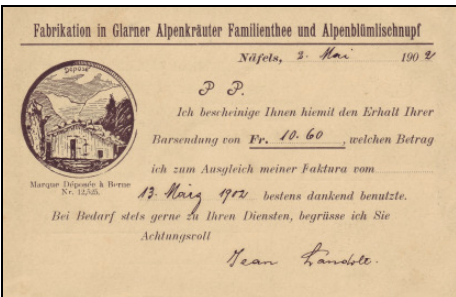 Fabrikation in Glarner Alpenkräuter Familienthee und Alpenblümlischnupf
Näfels, 3. Mai 1902
DÉPOSÉ
P P.
Ich bescheinige Ihnen hiemit den Erhalt Ihrer
Barsendung von Fr. 10.60, welchen Betrag
ich zum Ausgleich meiner Faktura vom
Marque Déposée à Berne
Nr. 12,525.
13. März 1902 bestens dankend benutzte.
Bei Bedarf stets gerne zu Ihren Diensten, begrüsse ich Sie
Achtungsvoll
Jean Landolt.